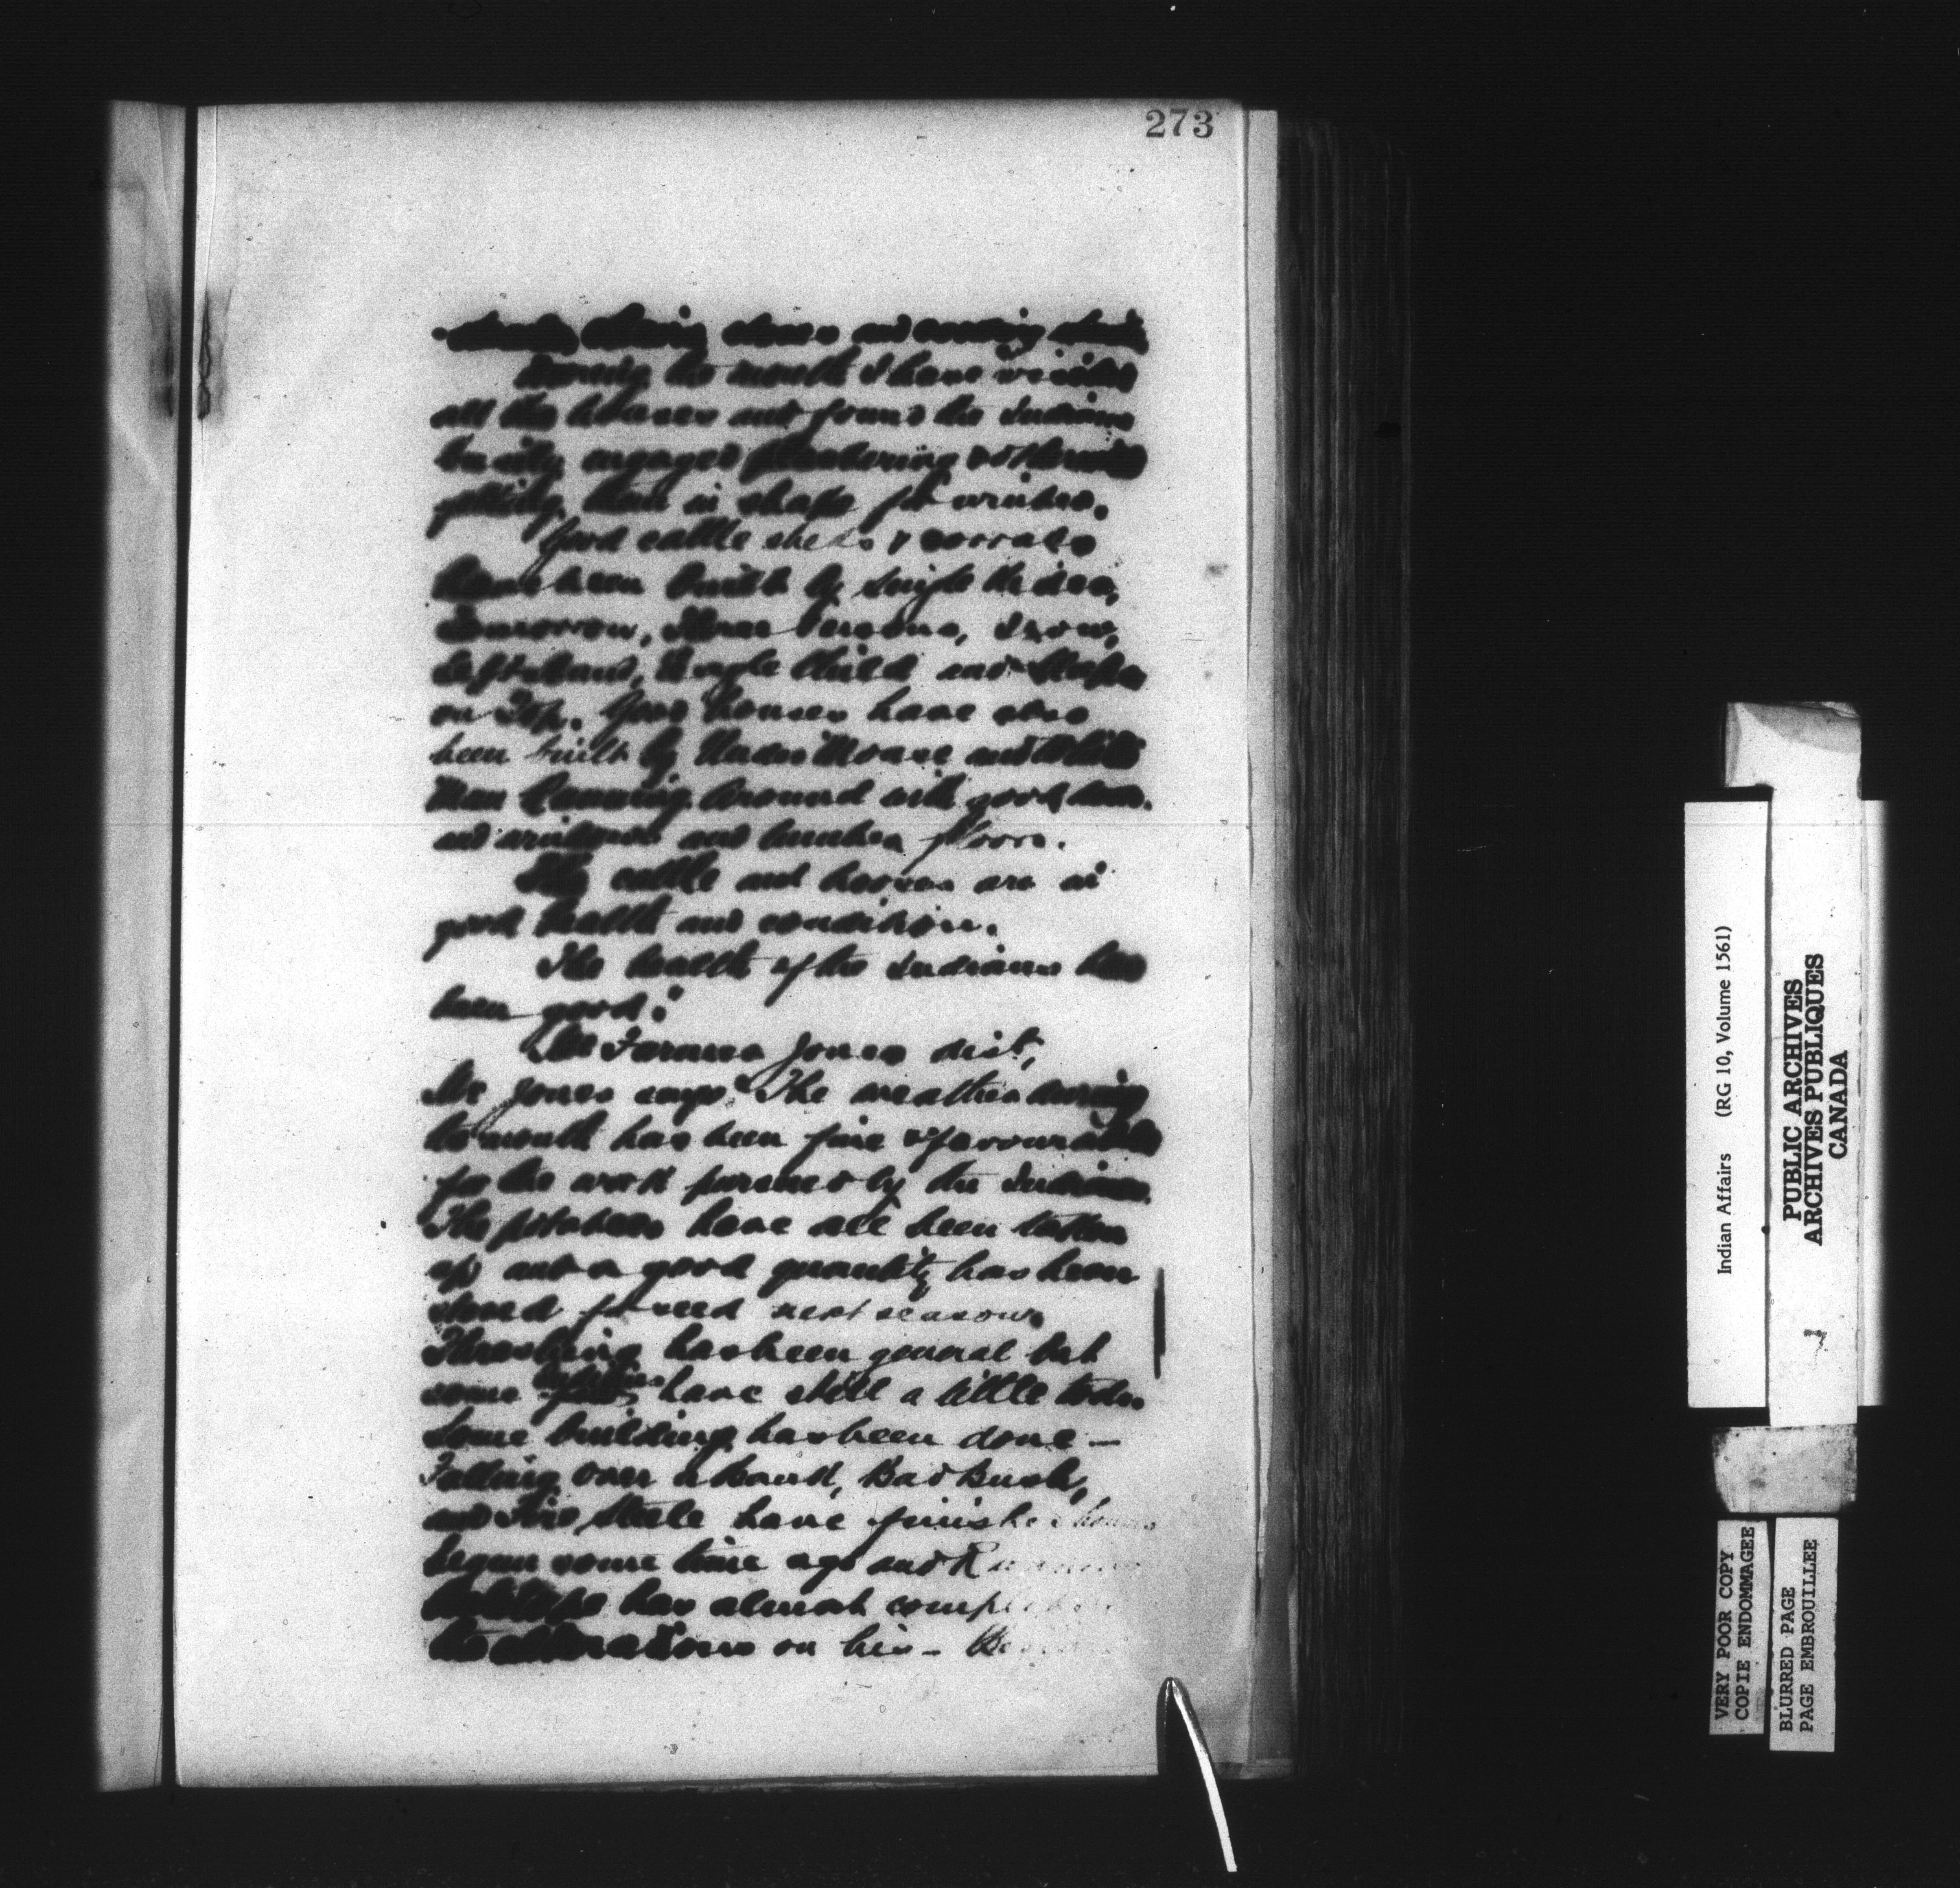 273
and
During the month I have visited
all the houses and found the Indians
busily engaged plastering &
getting them in shape for winter.
Good cattle sheds & corrals
have been built by
Three Persons, Crow,
Eagle Child and
on Top. Good houses have also
been built by and White
Man Running Around with good doors
and windows and lumber floors.
The cattle and horses are in
good health and condition.
The health of the Indians has
been good."
At Farmer Jones dist,
Mr Jones says "The weather during
the month has been fine & favourable
for the work pursued by the Indians.
The potatoes have all been taken
up and a good quantity has been
stored for seed next season.
Thrashing has been general but
some have still a little to do.
Some building has been done —
Falling over a Bank, Bad Bush,
and Fire Steele have finished houses
begun some time ago and
has almost
the on his —
Indian Affairs (RG 10, Volume 1561)
PUBLIC ARCHIVES
ARCHIVES PUBLIQUES
CANADA
VERY POOR COPY
COPIE ENDOMMAGEE
BLURRED PAGE
PAGE EMBROUILLEE